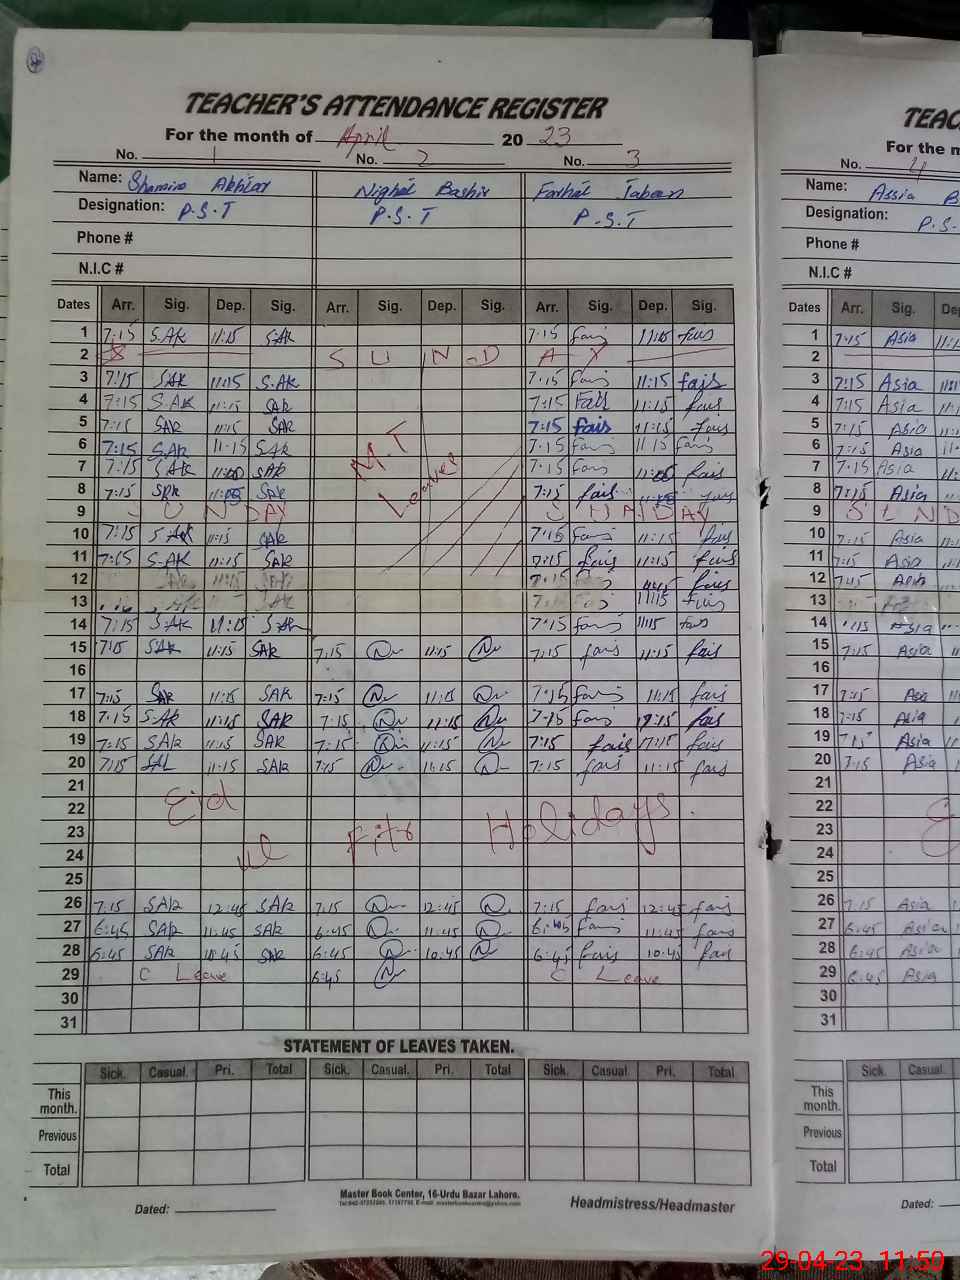 TEACHER'S ATTENDANCE REGISTER
For the month of April 20 23
No. 1 No. 2 No. 3
Name: Shamim Akhtar Nighat Bashir Farhat Tabasm
Designation: P.S.T P.S.T P.S.T
Phone #
N.I.C #
Dates Arr. Sig. Dep. Sig. Arr. Sig. Dep. Sig. Arr. Sig. Dep. Sig.
1 7:15 SAK 11:15 SAK 7:15 fais 11:15 fais
2 S U N D A Y
3 7:15 SAK 11:15 SAK 7:15 fais 11:15 fais
4 7:15 SAK 11:15 SAK 7:15 fais 11:15 fais
5 7:15 SAK 11:15 SAK 7:15 fais 11:15 fais
6 7:15 SAK 11:15 SAK M.T 7:15 fais 11:15 fais
7 7:15 SAK 11:00 SAK Leave 7:15 fais 11:00 fais
8 7:15 SAK SAK 7:15 fais fais
9 S U N D A Y S U N D A Y
10 7:15 SAK 11:15 SAK 7:15 fais 11:15 fais
11 7:15 SAK 11:15 SAK 7:15 fais 11:15 fais
12 SAK 11:15 SAK 7:15 fais
13 SAK 11:15 fais
14 7:15 SAK 11:15 SAK 7:15 fais 11:15 fais
15 7:15 SAK 11:15 SAK 7:15 11:15 7:15 fais 11:15 fais
16
17 7:15 SAK 11:15 SAK 7:15 11:15 7:15 fais 11:15 fais
18 7:15 SAK 11:15 SAK 7:15 11:15 7:15 fais 11:15 fais
19 7:15 SAK 11:15 SAK 7:15 11:15 7:15 fais 11:15 fais
20 7:15 SAK 11:15 SAK 7:15 11:15 7:15 fais 11:15 fais
21
22 Eid
23 ul Fitr Holidays
24
25
26 7:15 SAK 12:45 SAK 7:15 12:45 7:15 fais 12:45 fais
27 6:45 SAK 11:45 SAK 6:45 11:45 6:45 fais 11:45 fais
28 6:45 SAK 10:45 SAK 6:45 10:45 6:45 fais 10:45 fais
29 C Leave 6:45 C Leave
30
31
STATEMENT OF LEAVES TAKEN.
Sick. Casual. Pri. Total Sick. Casual. Pri. Total Sick. Casual Pri. Total
This month.
Previous
Total
Master Book Center, 16-Urdu Bazar Lahore.
Dated: Headmistress/Headmaster
TEAC
For the m
No. 4
Name: Assia B
Designation: P.S.
Phone #
N.I.C #
Dates Arr. Sig. Dep
1 7:15 Asia 11:
2
3 7:15 Asia
4 7:15 Asia
5 7:15 Asia
6 7:15 Asia
7 7:15 Asia
8 7:15 Asia
9 S U N D
10 7:15 Asia
11 7:15 Asia
12 7:15 Asia
13
14 Asia
15 7:15 Asia
16
17 7:15 Asia
18 7:15 Asia
19 7:15 Asia
20 7:15 Asia
21
22
23
24
25
26 7:15 Asia
27 6:45 Asia
28 6:45 Asia
29 6:45 Asia
30
31
Sick. Casual.
This month.
Previous
Total
Dated:
29-04-23 11:50